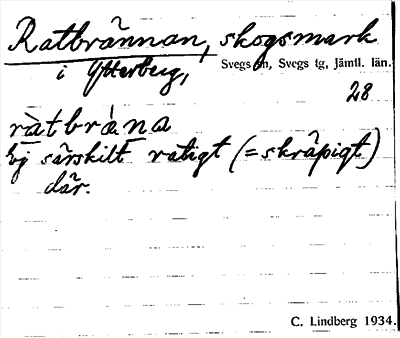 Ratbrännan, skogsmark
i Ytterberg, Svegs sn, Svegs tg, Jämtl. län.
28
ràtbràna
Ej särskilt ratigt (= skräpigt)
där.
C. Lindberg 1934.